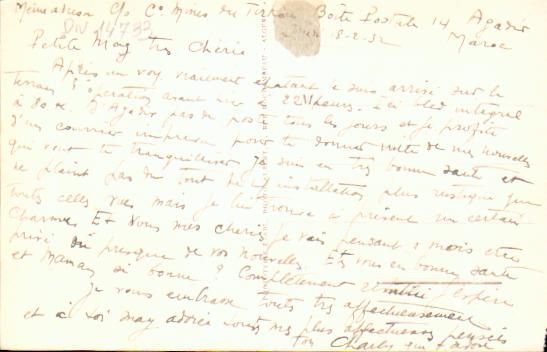 Même adresse c/o Cie Mines du Boîte Postale 14, Agadir
DIV 14733 18-2-32 Maroc
Petite May très Chérie
Après un voy vraiment épatant je suis arrivé sur le
terrain d'opération avant hier 22 heures. Ici bled intégral
à 80 K. d'Agadir pas de poste tous les jours et je profite
d'un courrier imprévu pour te donner vite de mes nouvelles
qui vont te tranquilliser je suis en très bonne santé et
ne plains pas du tout de installation plus rustique que
toutes celles vues mais je lui trouve à présent un certain
charme. Et vous mes chéries je vais pendant 1 mois être
privé presque de vos nouvelles Etes vous en bonne santé
et Maman si bonne ? Complètement j'espère
Je vous embrasse toutes très affectueusement
et à toi may adorée toutes mes plus affectueuses pensées
Ton Charles qui t'adore